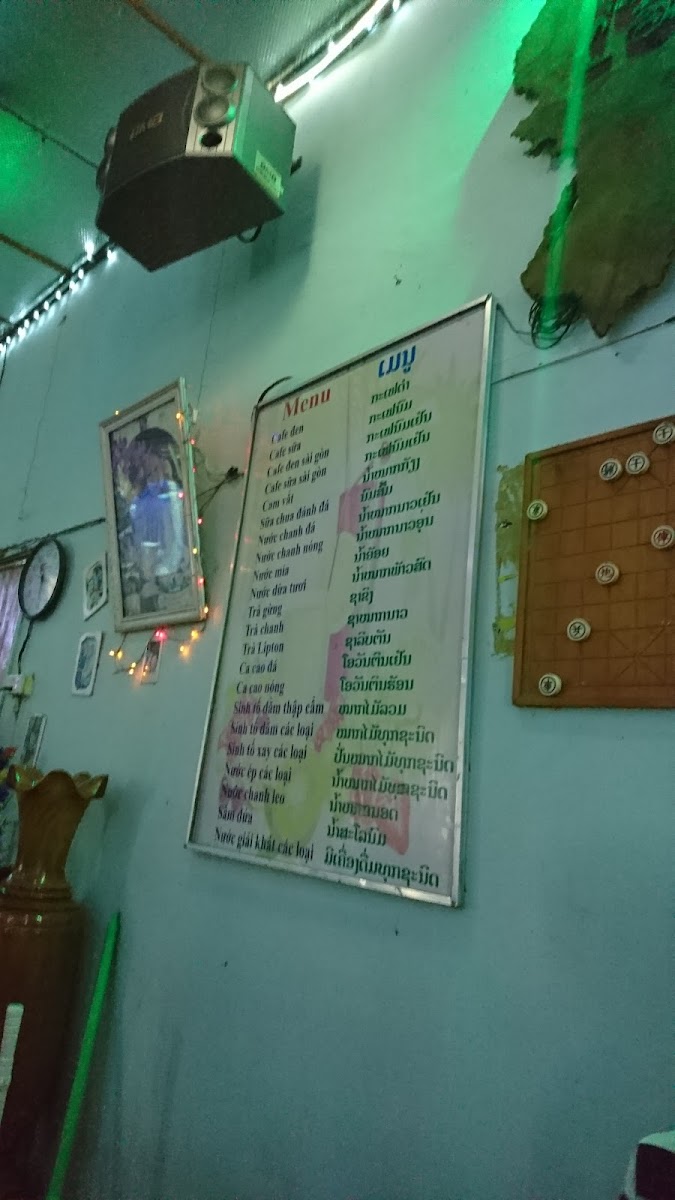 Menu ເມນູ
Cafe đen ກະເຟດຳ
Cafe sữa ກະເຟນົມ
Cafe đen sài gòn ກະເຟນົມເຢັນ
Cafe sữa sài gòn ກະເຟນົມເຢັນ
Cam vắt ນ້ຳໝາກກ້ຽງ
Sữa chua đánh đá ນົມສົ້ມ
Nước chanh đá ນ້ຳໝາກນາວເຢັນ
Nước chanh nóng ນ້ຳໝາກນາວອຸ່ນ
Nước mía ນ້ຳອ້ອຍ
Nước dừa tươi ນ້ຳໝາກພ້າວສົດ
Trà gừng ຊາຂີງ
Trà chanh ຊາໝາກນາວ
Trà Lipton ຊາລິບຕັນ
Ca cao đá ໂອວັນຕິນເຢັນ
Ca cao nóng ໂອວັນຕິນຮ້ອນ
Sinh tố dầm thập cẩm ໝາກໄມ້ລວມ
Sinh tố dầm các loại ໝາກໄມ້ທຸກຊະນິດ
Sinh tố xay các loại ປັ່ນໝາກໄມ້ທຸກຊະນິດ
Nước ép các loại ນ້ຳໝາກໄມ້ທຸກຊະນິດ
Nước chanh leo ນ້ຳໝາກນອດ
Sâm dứa ນ້ຳສະໂລນົມ
Nước giải khát các loại ມີເຄື່ອງດື່ມທຸກຊະນິດ